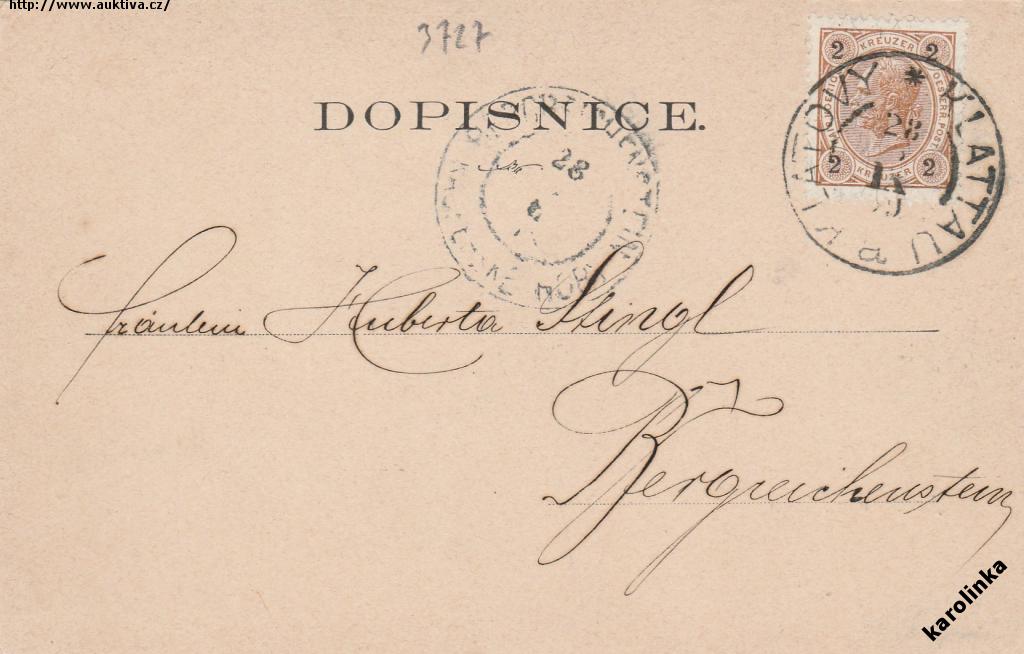 http://www.auktiva.cz/
3727
DOPISNICE.
2 KREUZER 2
2 KREUZER 2
KLATOVY * KLATTAU a
28
28
Fräulein Huberta Stingl
Bergreichenstein
karolinka